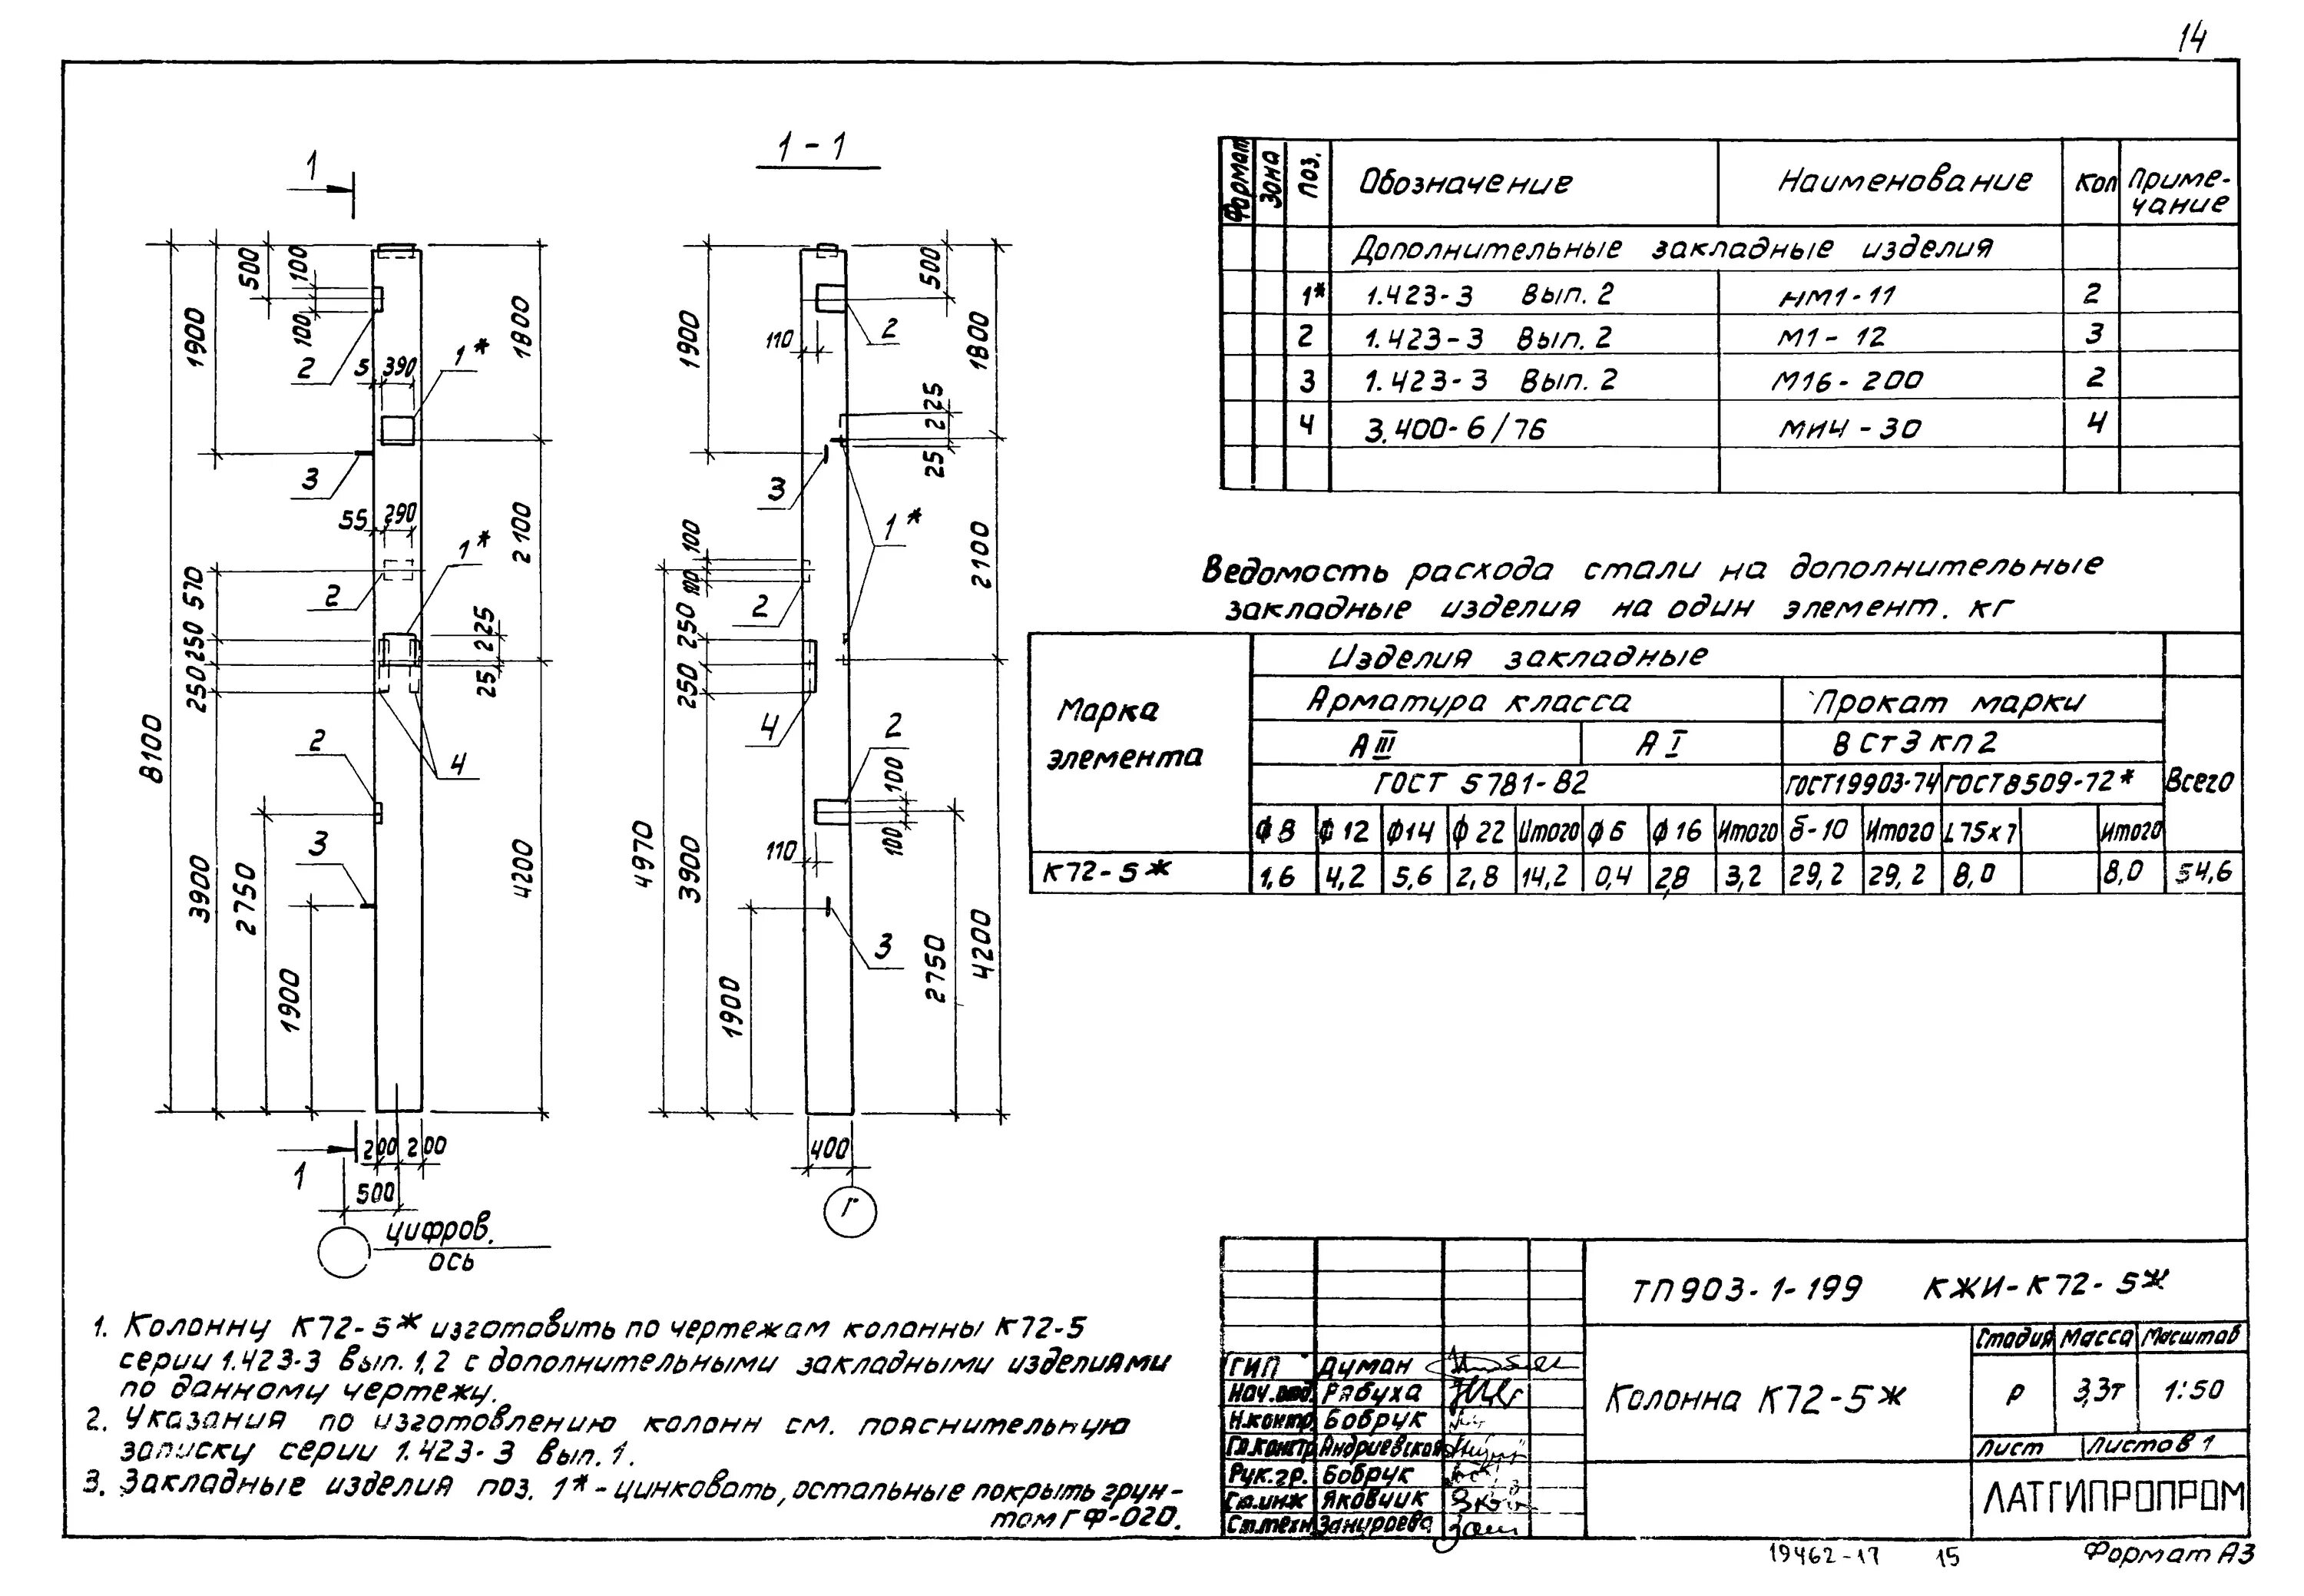 14
1
1 - 1
500
100
100
1900
2
5 390
1*
1800
3
55 290
1*
2100
2
570
250
250
225
25
8100
2
4
3
3900
2750
1900
4200
200 200
1
500
цифров.
ось
500
1900
110
2
1800
225
25
3
1*
100
100
2100
2
250
250
4
2
100
100
110
4970
3900
3
1900
2750
4200
400
Г
Формат Зона Поз. Обозначение Наименование Кол Приме-
чание
Дополнительные закладные изделия
1* 1.423-3 Вып. 2 НМ1-11 2
2 1.423-3 Вып. 2 М1-12 3
3 1.423-3 Вып. 2 М16-200 2
4 3.400-6/76 МИ4-30 4
Ведомость расхода стали на дополнительные
закладные изделия на один элемент. кг
Марка
элемента
Изделия закладные
Арматура класса Прокат марки
А III А I В Ст 3 кп 2
ГОСТ 5781-82 ГОСТ19903-74 ГОСТ8509-72* Всего
ф 8 ф 12 ф14 ф 22 Итого ф 6 ф 16 Итого δ-10 Итого L75×7 Итого
К72-5ж 1,6 4,2 5,6 2,8 14,2 0,4 2,8 3,2 29,2 29,2 8,0 8,0 54,6
1. Колонну К72-5ж изготовить по чертежам колонны К72-5
серии 1.423-3 Вып. 1,2 с дополнительными закладными изделиями
по данному чертежу.
2. Указания по изготовлению колонн см. пояснительную
записку серии 1.423-3 Вып. 1.
3. Закладные изделия поз. 1* - цинковать, остальные покрыть грун-
том ГФ-020.
ТП903-1-199 КЖИ-К72-5ж
Колонна К72-5ж
Стадия Масса Масштаб
Р 3,3т 1:50
Лист Листов 1
ЛАТГИПРОПРОМ
ГИП Думан
Нач.отд. Рябуха
Н.контр. Бобрук
Гл.констр. Андриевская
Рук.гр. Бобрук
Ст.инж Яковчик
Ст.техн.
19462-17 15
Формат А3